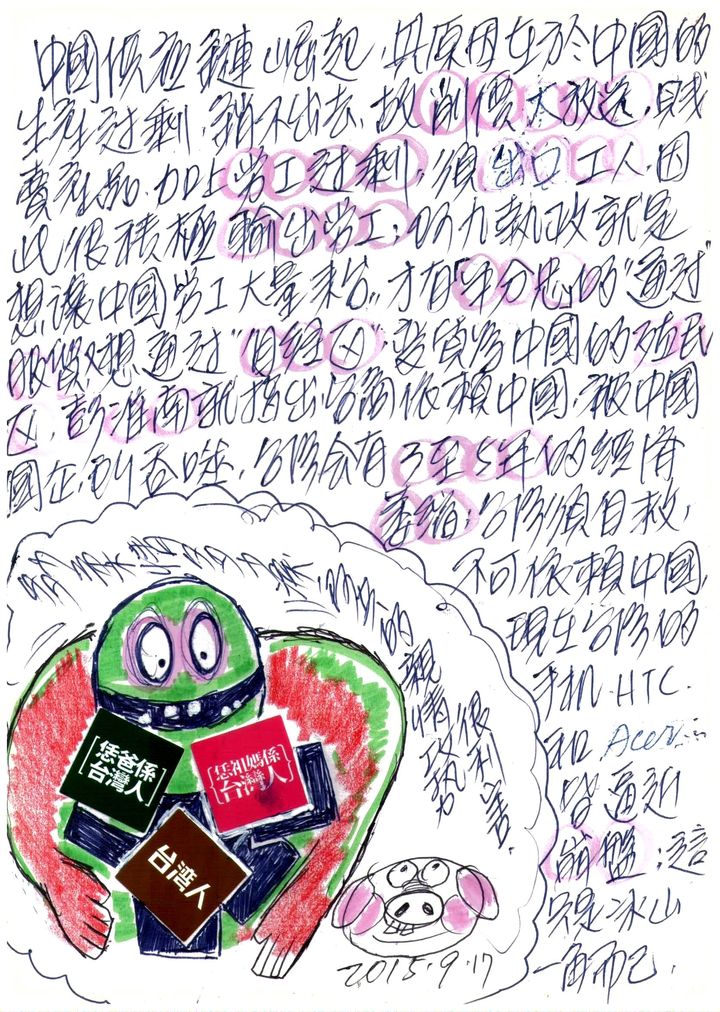 中國供應鏈崛起,其原因在於中國的
生產过剩,銷不出去,故削價大放送,賤
賣產品.加上勞工过剩,須出口工人,因
此很積極輸出勞工,馬九執政就是
想讓中國勞工大量來台,才有「半分忠」的"通过"
服貿,又想通过"自經区",變質為中國的殖民
区,彭淮南就指出台商依賴中國,被中國
國企,到吞噬,台湾会有3至5年的經济
萎縮;台湾須自救,
不可依賴中國,
現在台湾的
手机.HTC.
和Acer
皆逼近
崩盤;這
只是冰山
一角而已.
的
親情攻勢
很利害.
[恁爸係
台灣人]
[恁祖媽係
台灣人]
台湾人
2015.9.17